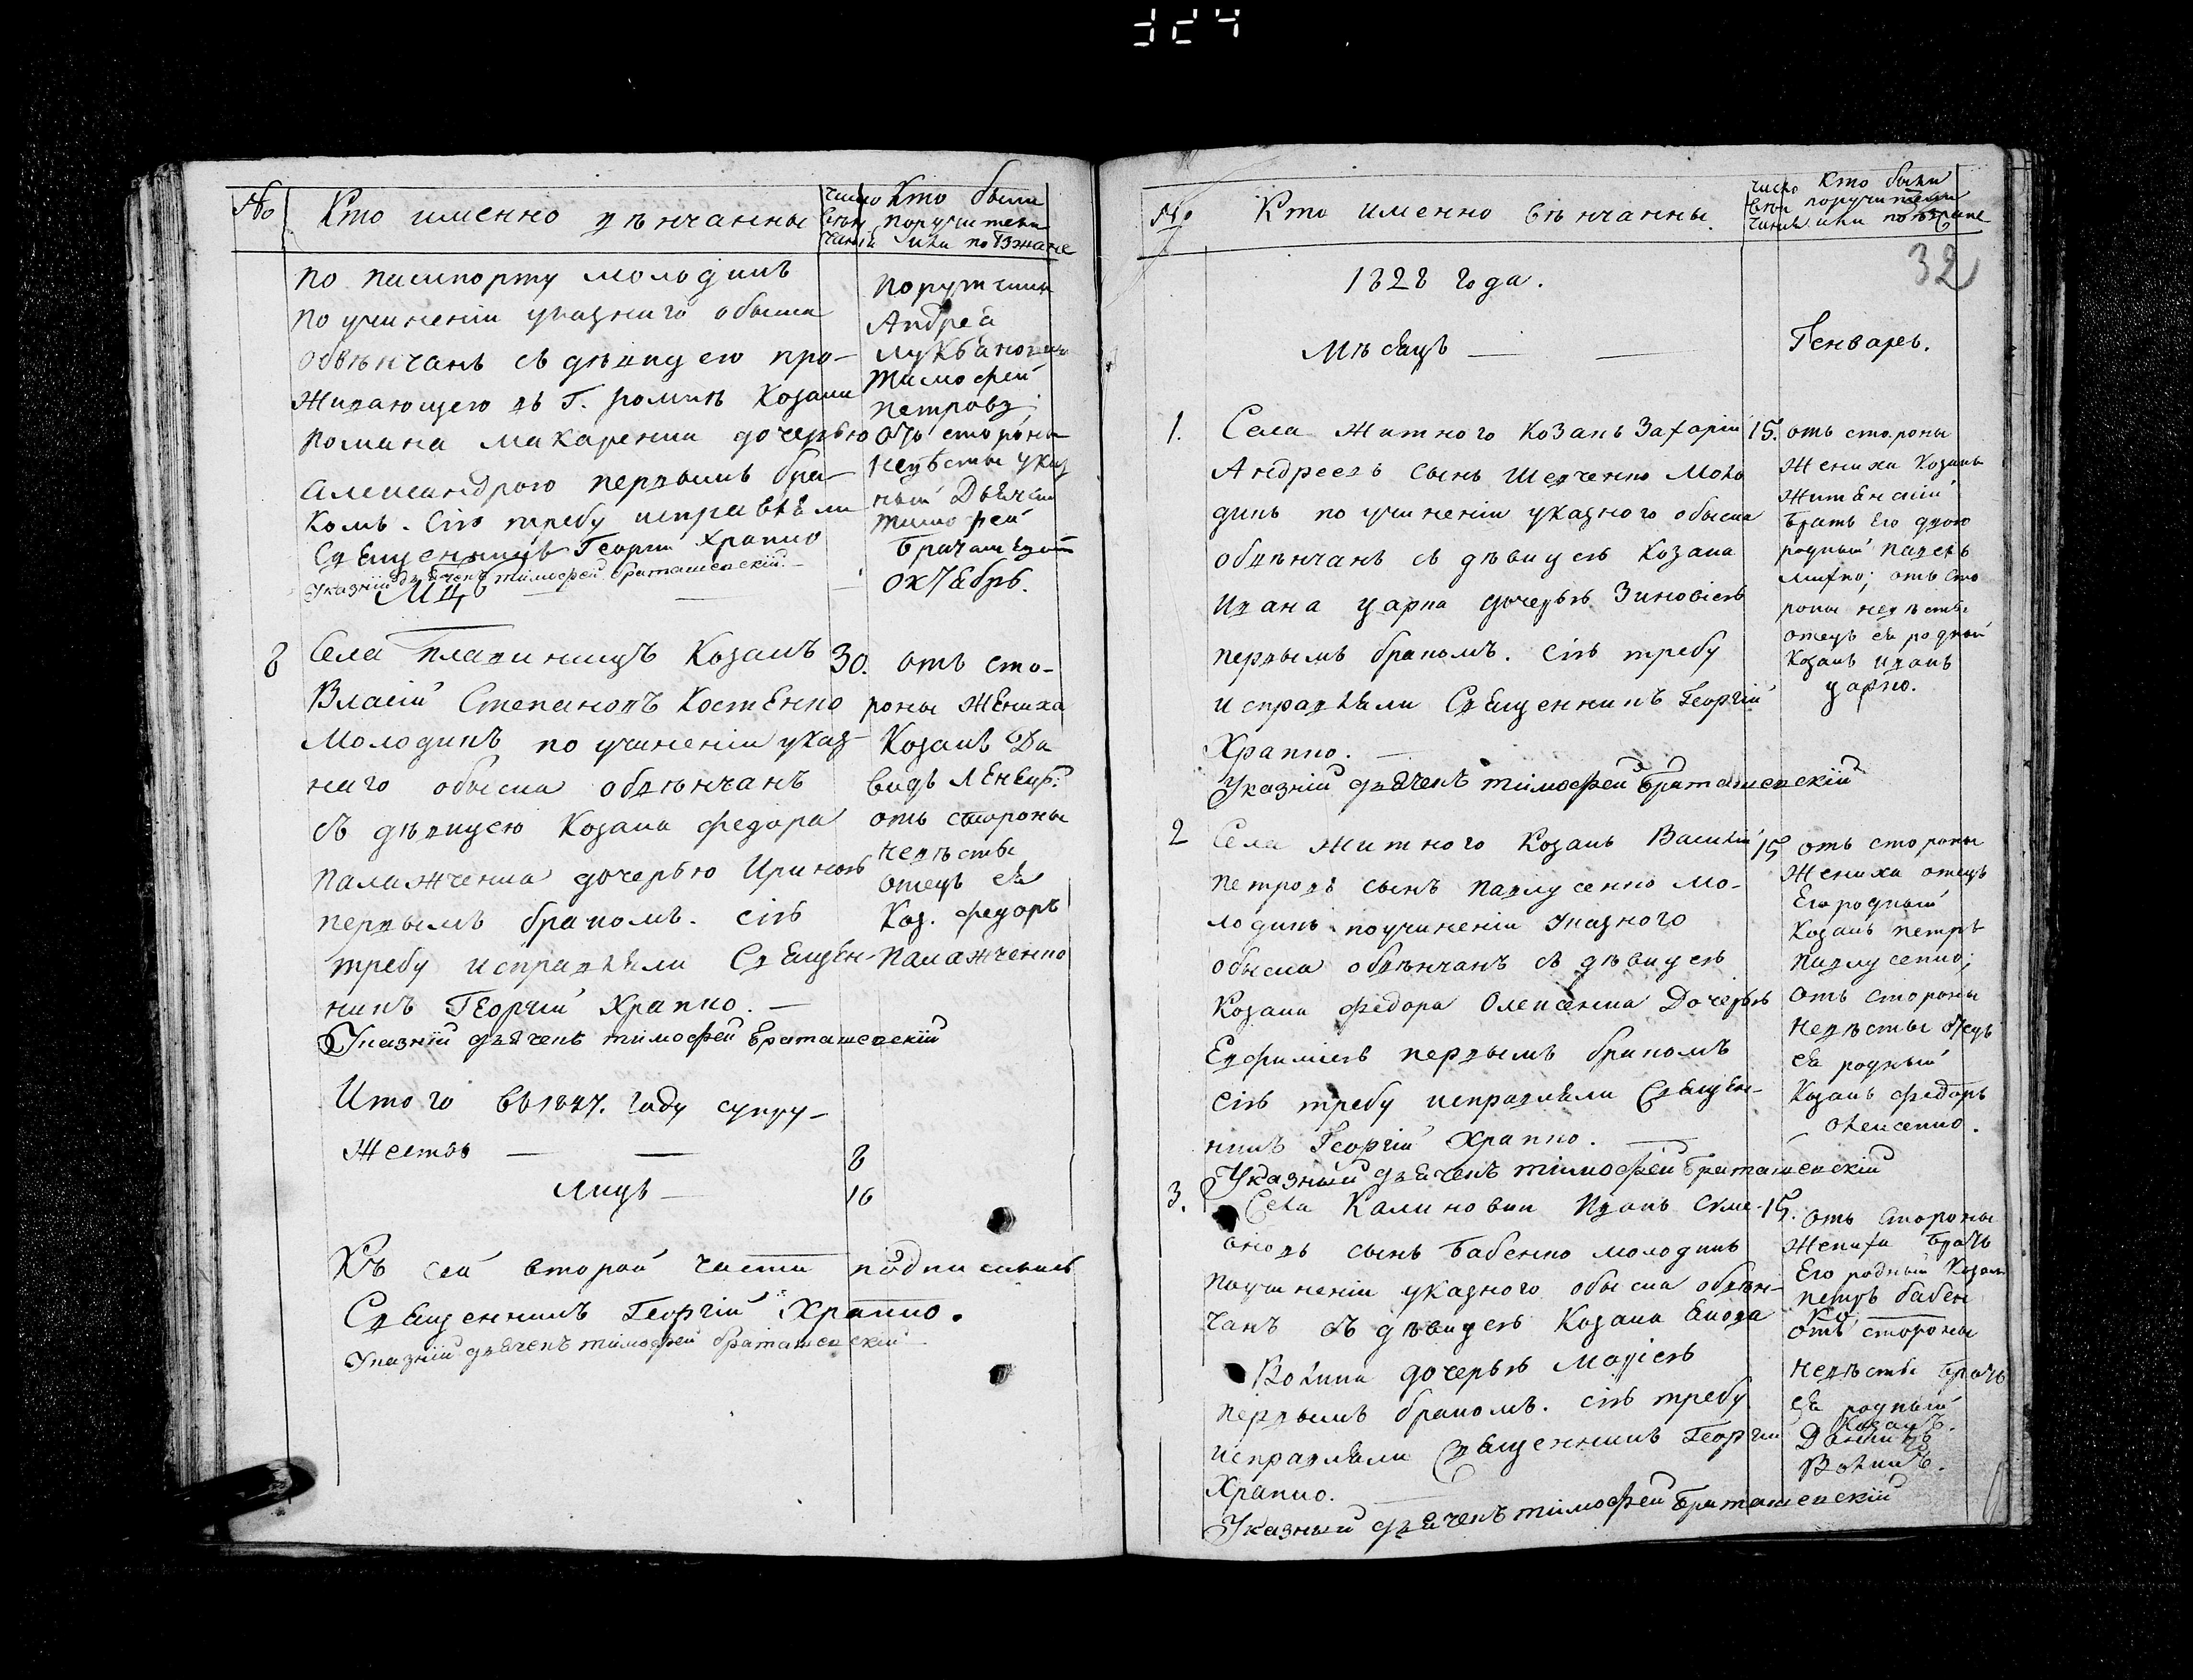 324
№ Кто именно вѣнчанны
число вѣн чаній
Кто были поручители или поѣзжане
по пашпорту молодикъ
по учиненіи указнаго обыска
обвѣнчанъ съ дѣвицею про-
живающего въ Г. Ромнѣ Козака
Романа Макаренка дочерью
Александрою первымъ бра-
комъ. Сію требу исправляли
Священникъ Георгій Храпко
Указній дьяченъ тимофей браташевскій
Мцъ — — — Октябрь.
порутчикъ
Андрей
Лукьяновичъ
Тимофей
петровъ;
отъ стороны
невѣсты указ
ный Дьячекъ
тимофей
Браташевскій
8 Села плавинищъ Козакъ 30.
Власій Степановъ Костенко
Молодикъ по учиненіи указ-
наго обыска обвѣнчанъ
съ дѣвицею Козака Федора
палажченка дочерью Ириною
первымъ бракомъ. сію
требу исправляли Священ-
никъ Георгій Храпко. —
Указній дьяченъ тимофей Браташевскій
отъ сто-
роны жениха
Козакъ Да
видъ
отъ стороны
невѣсты
отецъ ея
Коз. федоръ
палажченко
Итого въ 1827. году супру-
жествъ — — 8
лицъ — 16
Къ сей второй части подписались
Священникъ Георгій Храпко.
Указній дьяченъ тимофей браташевскій
№ Кто именно вѣнчанны.
число вѣн чанія
Кто были поручители или поѣзжане
32
1828 года.
Мѣсяцъ — — Генварь.
1. Села Житного Козакъ Захарій 15.
Андреевъ сынъ Шевченко Моло
дикъ по учиненіи указного обыска
обвѣнчанъ съ дѣвицею Козака
Ивана царка дочерью Зиновіею
первымъ бракомъ. сію требу
исправляли Священникъ Георгій
Храпко. —
Указній дьяченъ тимофей Браташевскій
отъ стороны
жениха Козакъ
Житянскій
братъ его двою
родный павелъ
михно; отъ сто
роны невѣсты
отецъ ея родный
Козакъ иванъ
царко.
2 Села житного Козакъ Василій 15
петровъ сынъ павлусенко мо-
лодикъ по учиненіи указного
обыска обвѣнчанъ съ дѣвицею
Козака Федора Олексенка Дочерью
Евфиміею первымъ бракомъ
сію требу исправляли Священ-
никъ Георгій Храпко. —
Указный дьяченъ тимофей Браташевскій
отъ стороны
жениха отецъ
Его родный
Козакъ петръ
павлусенко;
отъ стороны
невѣсты отецъ
ея родный
Козакъ федоръ
олексенко.
3. Села Калиновки Иванъ Симе- 15.
оновъ сынъ бабенко молодикъ
по учиненіи указного обыска обвѣн-
чанъ съ дѣвицею Козака Якова
Волика дочерью Маріею
первымъ бракомъ. сію требу
исправляли Священникъ Георгій
Храпко. —
Указный дьяченъ тимофей Браташевскій
отъ стороны
жениха братъ
Его родный Козакъ
петръ бабен
ко,
отъ стороны
невѣсты братъ
ея родный
Козакъ.
Даніилъ
Воликъ.